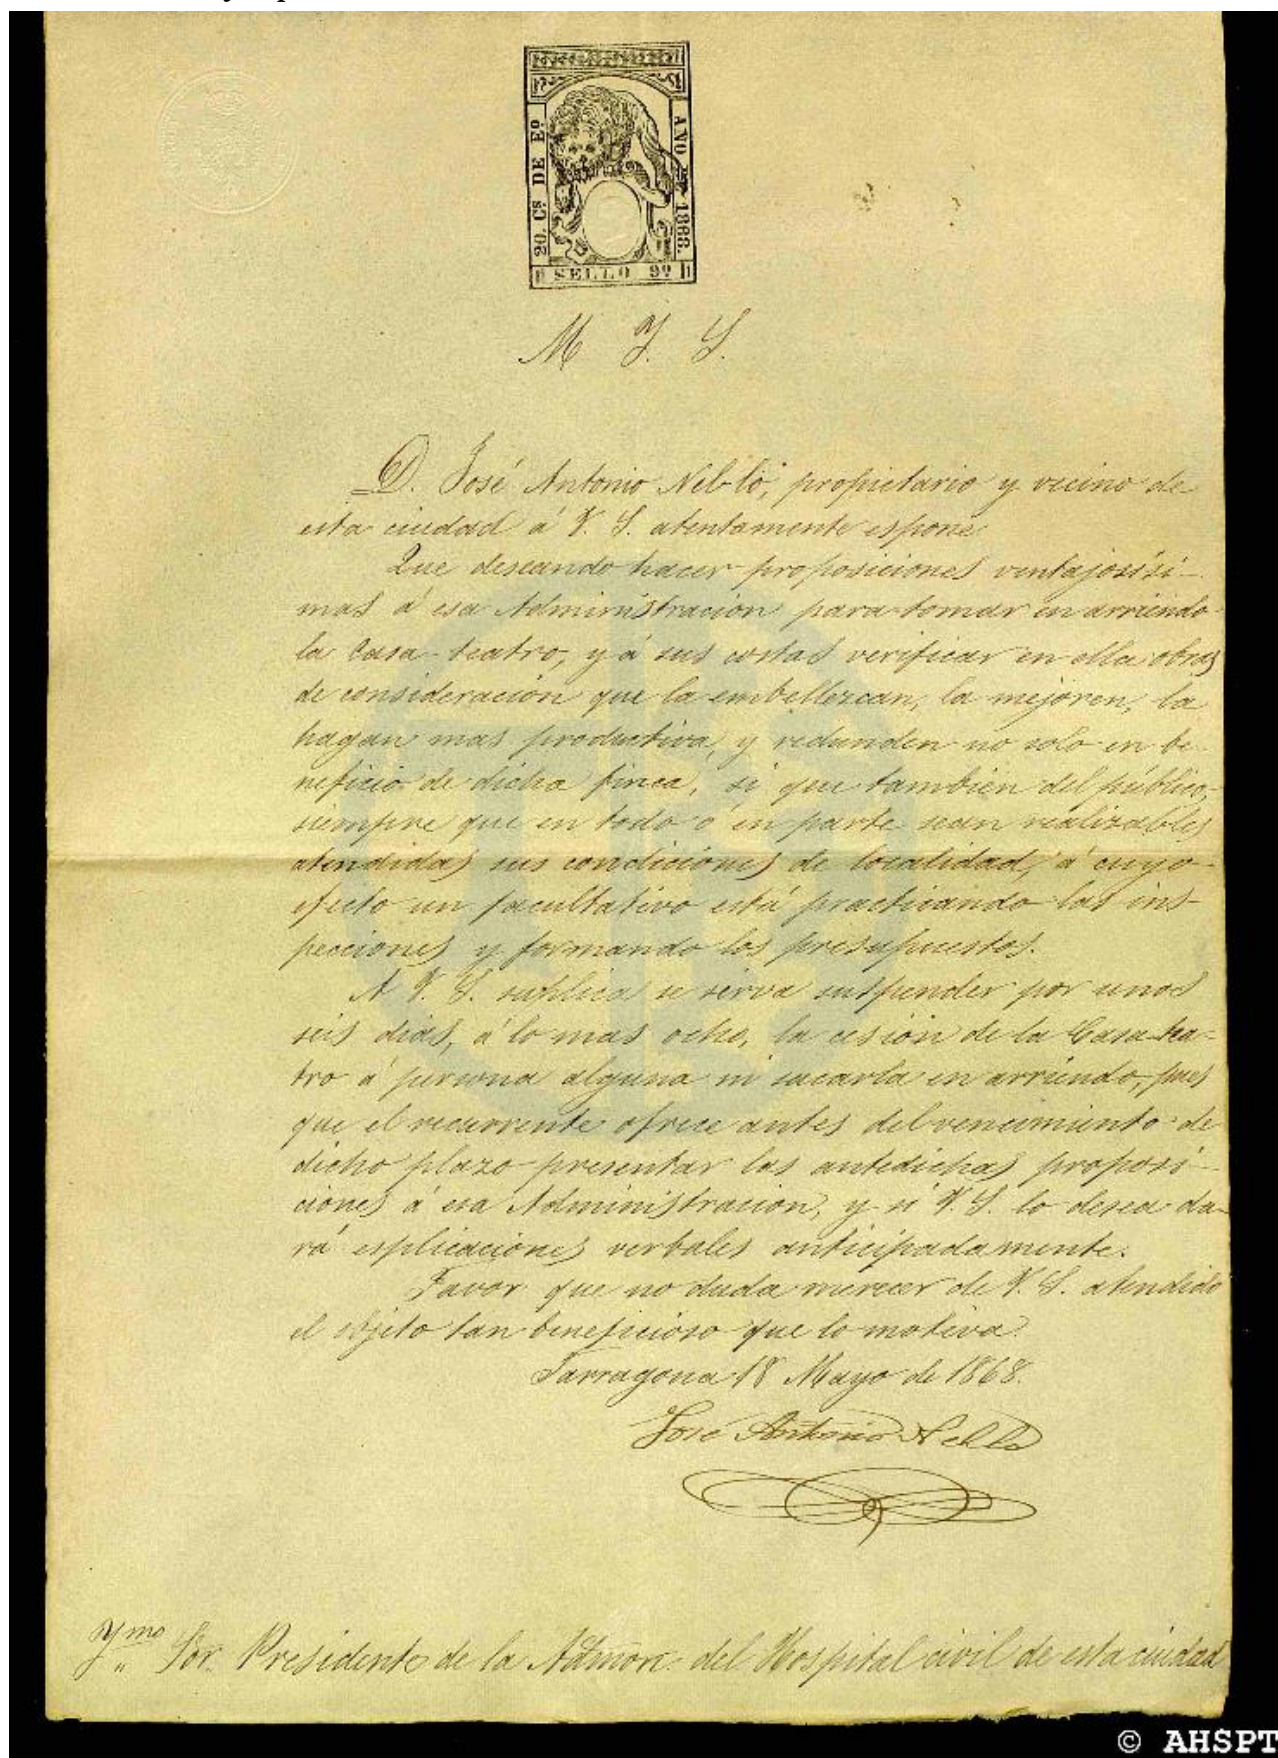 20. Cs DE Eo
AÑO 1868.
SELLO 9º
M Y. S.
D. José Antonio Nel-lo, propietario y vecino de
esta ciudad á V. S. atentamente espone
Que deseando hacer proposiciones ventajosísi-
mas á esa Administracion para tomar en arriendo
la Casa-teatro, y á sus costas verificar en ella obras
de consideración que la embellezcan, la mejoren, la
hagan mas productiva, y redunden no solo en be-
neficio de dicha finca, si que tambien del público,
siempre que en todo o en parte sean realizables
atendidas sus condiciones de localidad, á cuyo
efecto un facultativo está practicando las ins-
pecciones y formando los presupuestos.
A V. S. suplica se sirva suspender por unos
seis dias, á lo mas ocho, la cesión de la Casa-tea-
tro á persona alguna ni sacarla en arriendo, pues
que el recurrente ofrece antes del vencimiento de
dicho plazo presentar las antedichas proposi-
ciones á esa Administracion, y si V. S. lo desea da-
rá esplicaciones verbales anticipadamente.
Favor que no duda merecer de V. S. atendido
el objeto tan beneficioso que lo motiva.
Tarragona 18 Mayo de 1868.
José Antonio Nel-lo
Ymo Sor. Presidente de la Admon. del Hospital civil de esta ciudad
© AHSPT